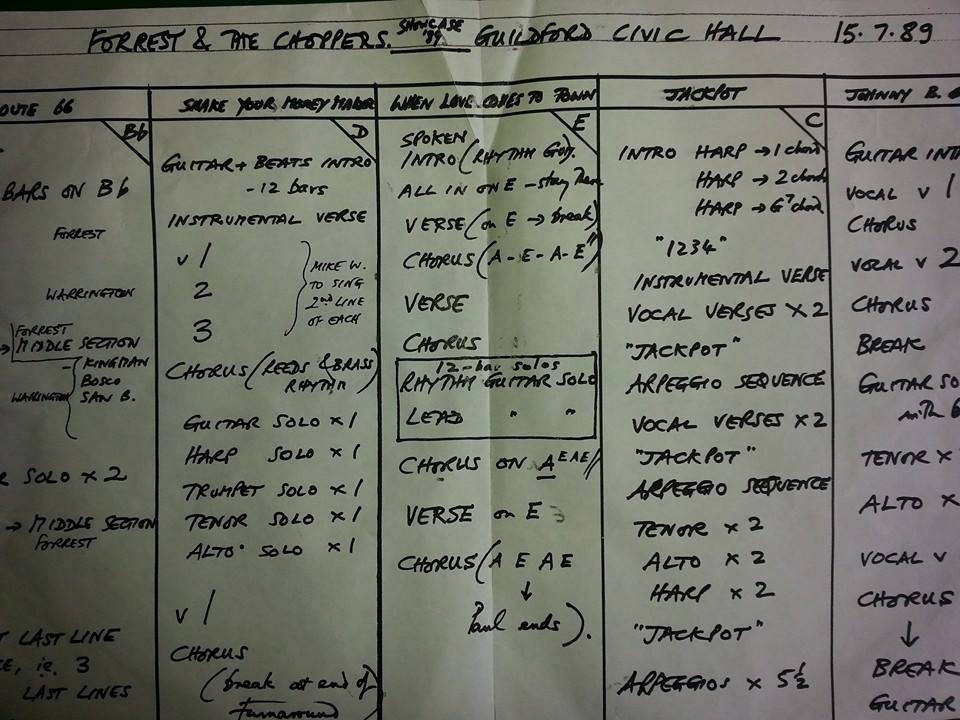 FORREST & THE CHOPPERS. SHOWCASE '89 GUILDFORD CIVIC HALL 15.7.89
OUTE 66
Bb
BARS ON Bb
FORREST
WARRINGTON
FORREST
→ MIDDLE SECTION
- KINGMAN
BOSCO
WARRINGTON SAN B.
R SOLO x 2
→ MIDDLE SECTION
FORREST
T LAST LINE
CE, ie. 3
LAST LINES
SHAKE YOUR MONEY MAKER
D
GUITAR + BEATS INTRO
- 12 bars
INSTRUMENTAL VERSE
v 1
2
3
MIKE W.
TO SING
2nd LINE
OF EACH
CHORUS (REEDS & BRASS)
RHYTHM
GUITAR SOLO x 1
HARP SOLO x 1
TRUMPET SOLO x 1
TENOR SOLO x 1
ALTO SOLO x 1
v 1
CHORUS
(break at end of
turnaround
WHEN LOVE COMES TO TOWN
E
SPOKEN
INTRO (RHYTHM GUIT.
ALL IN ON E - stay there
VERSE (on E → break)
CHORUS (A - E - A - E")
VERSE
CHORUS
12-bar solos
RHYTHM GUITAR SOLO
LEAD " "
CHORUS ON A EAE//
VERSE on E
CHORUS (A E A E
↓
Paul ends).
JACKPOT
C
INTRO HARP → 1 chord
HARP → 2 chords
HARP → G7 chord
"1234"
INSTRUMENTAL VERSE
VOCAL VERSES x 2
"JACKPOT"
ARPEGGIO SEQUENCE
VOCAL VERSES x 2
"JACKPOT"
ARPEGGIO SEQUENCE
TENOR x 2
ALTO x 2
HARP x 2
"JACKPOT"
ARPEGGIOS x 5½
JOHNNY B. G
GUITAR INT
VOCAL v 1
CHORUS
VOCAL v 2
CHORUS
BREAK
GUITAR SO
with 6
TENOR x
ALTO x
VOCAL v
CHORUS
↓
BREAK
GUITAR